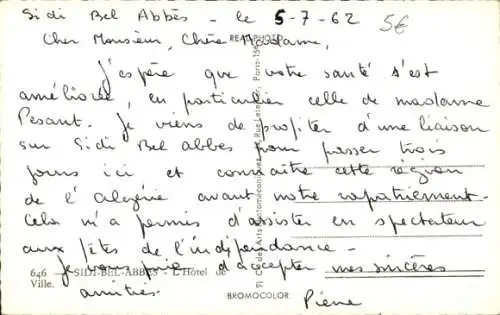 Sidi Bel Abbès - le 5-7-62
5€
Cher Monsieur, Chère Madame,
J'espère que votre santé s'est
améliorée, en particulier celle de madame
Pesant. Je viens de profiter d'une liaison
sur Sidi Bel abbes pour passer trois
jours ici et connaître cette région
de l'Algérie avant notre rapatriement.
Cela m'a permis d'assister en spectateur
aux fêtes de l'indépendance -
Je vous prie d'accepter mes sincères
amitiés
Pierre
646 - SIDI-BEL-ABBÈS - L'Hôtel de
Ville.
BROMOCOLOR
REAL PHOTO